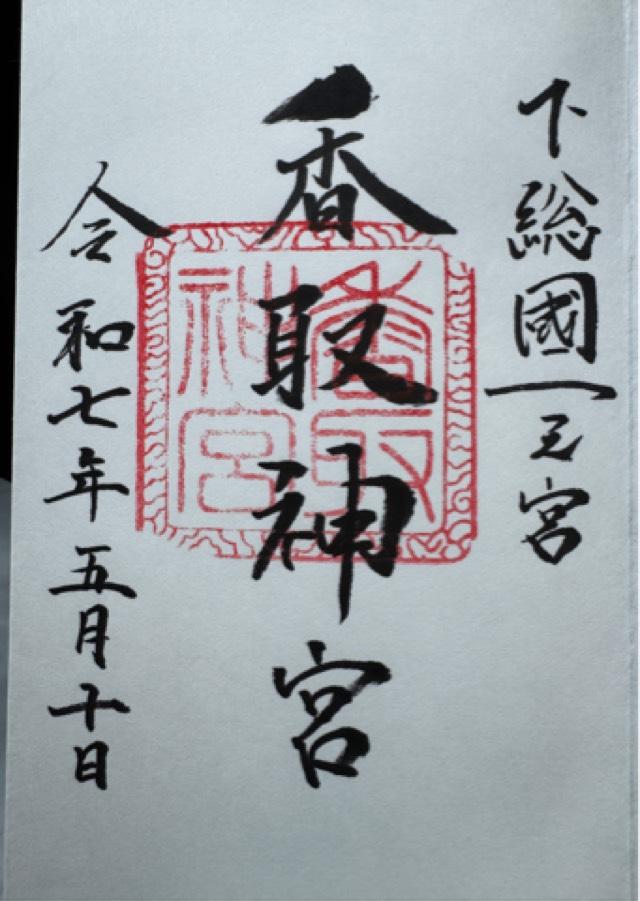 下総國一之宮
香取神宮
香取神宮
令和七年五月十日